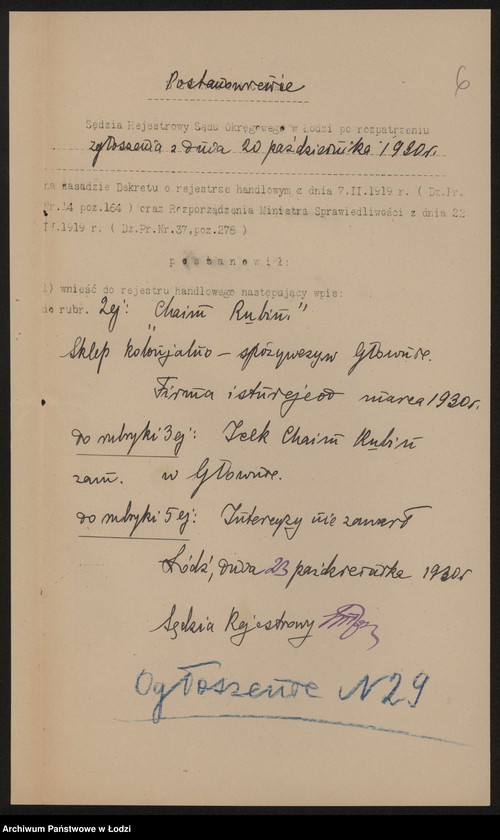 6
Postanowienie
Sędzia Rejestrowy Sądu Okręgowego w Łodzi po rozpatrzeniu
zgłoszenia z dnia 20 października 1930r.
na zasadzie Dekretu o rejestrze handlowym z dnia 7.II.1919 r. ( Dz.Pr.
Nr.14 poz.164 ) oraz Rozporządzenia Ministra Sprawiedliwości z dnia 22
IV.1919 r. ( Dz.Pr.Nr.37,poz.278 )
postanowił:
1) wnieść do rejestru handlowego następujący wpis:
do rubr. 2ej: "Chaim Rubin."
Sklep kolonjalno – spożywczy w Głownie.
Firma istnieje od marca 1930r.
do rubryki 3ej: Icek Chaim Rubin
zam. w Głownie.
do rubryki 5ej: Intercyzy nie zawarł
Łódź, dnia 23 października 1930r
Sędzia Rejestrowy
Ogłoszenie N 29
Archiwum Państwowe w Łodzi